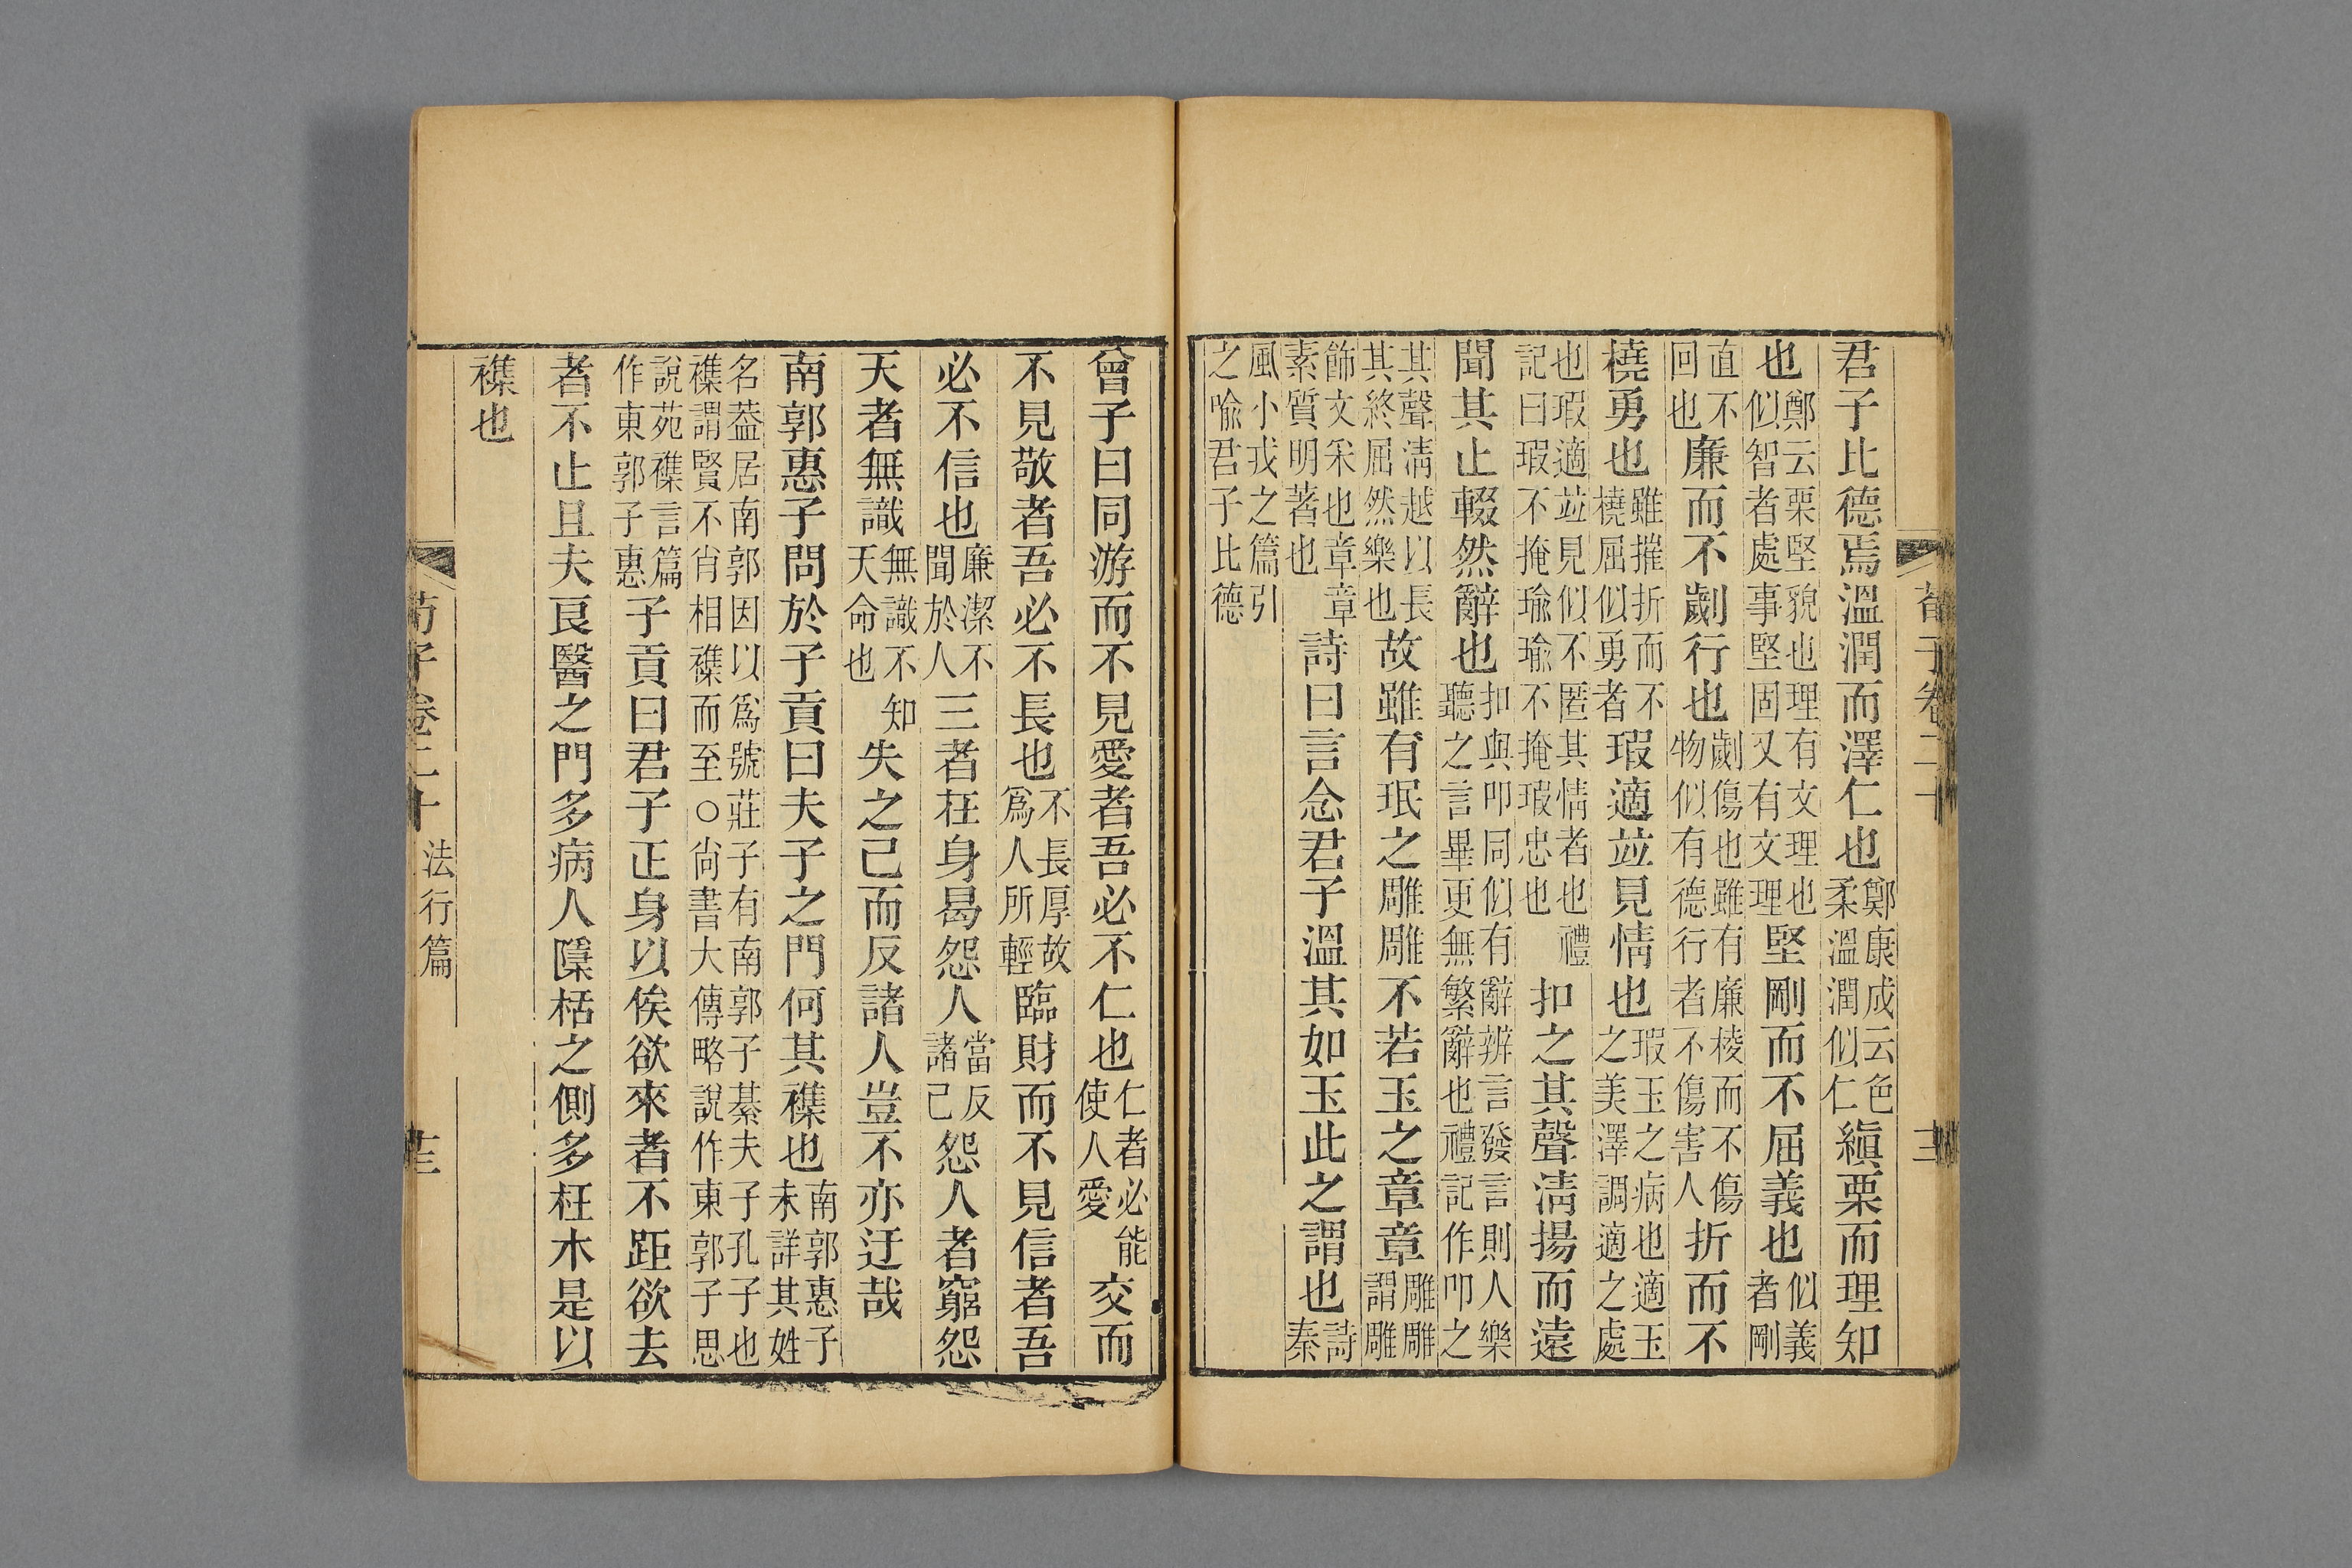 荀子卷二十
君子比德焉溫潤而澤仁也鄭康成云色柔溫潤似仁縝栗而理知
也鄭云栗堅貌也理有文理也似智者處事堅固又有文理堅剛而不屈義也似義者剛
直不回也廉而不劌行也劌傷也雖有廉棱而不傷物似有德行者不傷害人折而不
橈勇也雖摧折而不橈屈似勇者瑕適竝見情也瑕玉之病也適玉之美澤調適之處
也瑕適竝見似不匿其情者也禮記曰瑕不掩瑜瑜不掩瑕忠也扣之其聲清揚而遠
聞其止輟然辭也扣與叩同似有辭辨言發言則人樂聽之言畢更無繁辭也禮記作叩之
其聲清越以長其終屈然樂也故雖有珉之雕雕不若玉之章章雕雕謂雕
飾文采也章章素質明著也詩曰言念君子溫其如玉此之謂也詩秦
風小戎之篇引之喻君子比德
曾子曰同游而不見愛者吾必不仁也仁者必能使人愛交而
不見敬者吾必不長也不長厚故爲人所輕臨財而不見信者吾
必不信也廉潔不聞於人三者在身曷怨人當反諸己怨人者窮怨
天者無識無識不知天命也失之己而反諸人豈不亦迂哉
南郭惠子問於子貢曰夫子之門何其襍也南郭惠子未詳其姓
名葢居南郭因以爲號莊子有南郭子綦夫子孔子也襍謂賢不肖相襍而至○尚書大傳略說作東郭子思
說苑襍言篇作東郭子惠子貢曰君子正身以俟欲來者不距欲去
者不止且夫良醫之門多病人檃栝之側多枉木是以
襍也
荀子卷二十 法行篇